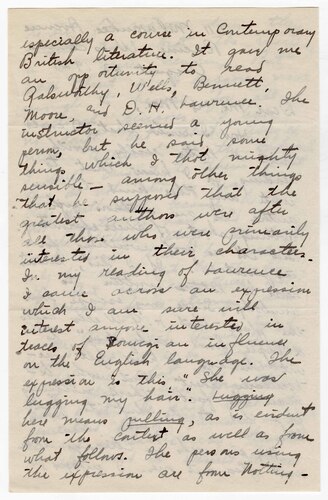 especially a course in Contemporary
British literature. It gave me
an opportunity to read
Galsworthy, Wells, Bennett,
Moore, and D. H. Lawrence. The
instructor seemed a young
person, but he said some
things which I thot mighty
sensible — among other things
that he supposed that the
greatest authors were after
all those who were primarily
interested in their characters.
In my reading of Lawrence
I came across an expression
which I am sure will
interest anyone interested in
traces of an influence
on the English language. The
expression is this "She was
lugging my hair". Lugging
here means pulling, as is evident
from the context as well as from
what follows. The persons using
the expression are from Notting-